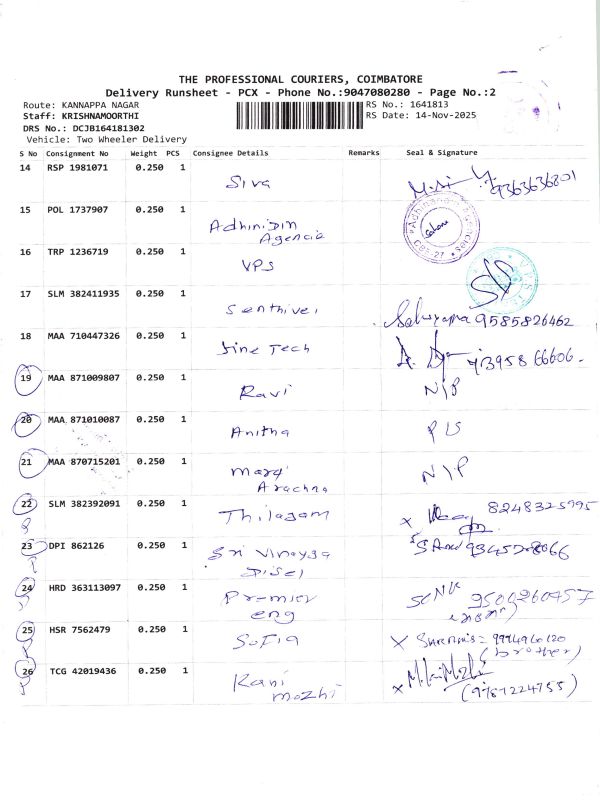 THE PROFESSIONAL COURIERS, COIMBATORE
Delivery Runsheet - PCX - Phone No.:9047080280 - Page No.:2
Route: KANNAPPA NAGAR RS No.: 1641813
Staff: KRISHNAMOORTHI RS Date: 14-Nov-2025
DRS No.: DCJB164181302
Vehicle: Two Wheeler Delivery
S No Consignment No Weight PCS Consignee Details Remarks Seal & Signature
14 RSP 1981071 0.250 1 Siva 9363636801
15 POL 1737907 0.250 1 Adhinidin
Agencie
16 TRP 1236719 0.250 1 VPS
17 SLM 382411935 0.250 1 Senthivel 9585826462
18 MAA 710447326 0.250 1 fine Tech
19 MAA 871009807 0.250 1 Ravi N/P
20 MAA 871010087 0.250 1 Anitha P/S
21 MAA 870715201 0.250 1 N/P
22 SLM 382392091 0.250 1 Thilagam 8248325995
23 DPI 862126 0.250 1 Sri Vinayga
Disel
24 HRD 363113097 0.250 1 Premier 9500260457
eng
25 HSR 7562479 0.250 1 Sofia 9994960120
(brother)
26 TCG 42019436 0.250 1 Kani
mozhi (9787224755)